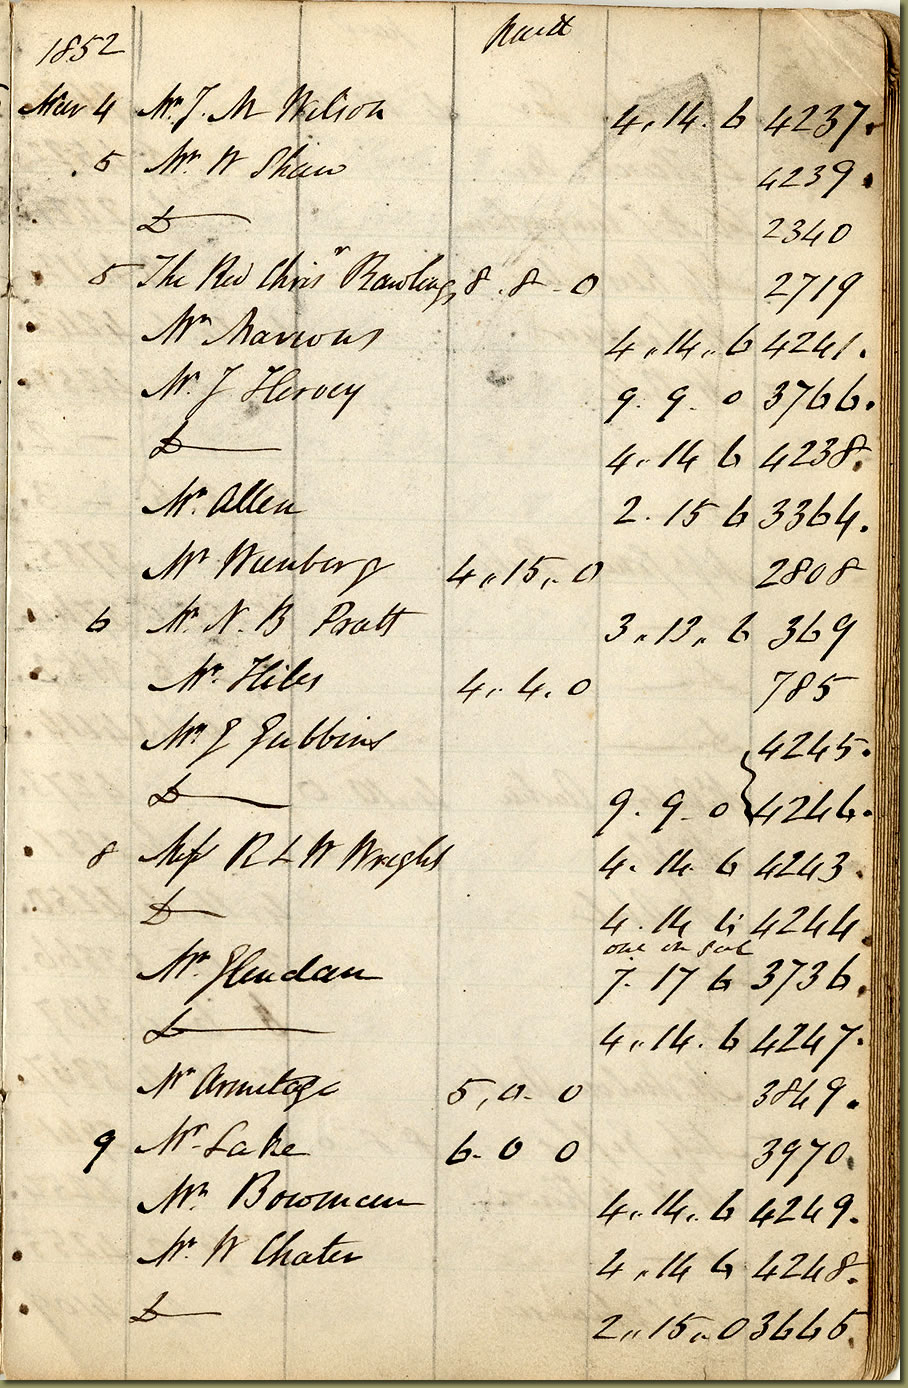 1852
Nov 4 Mr. J. M Wilson 4.14.6 4237.
5 Mr. W Shaw 4239.
Do 2340
5 The Rev Chrisr Rawlings 8.8.0 2719
Mr 4.14.6 4241.
Mr. J Hervey 9.9.0 3766.
Do 4.14 6 4238.
Mr. Allen 2.15 6 3364.
Mr 4.15.0 2808
6 Mr. N. B Pratt 3.13.6 369
Mr. Hiles 4.4.0 785
Mr J Gubbins 4245.
Do 9.9.0 4246.
8 R L W Wright 4.14.6 4243.
Do 4.14 6 4244
one in
Mr. 7.17 6 3736.
Do 4.14.6 4247.
Mr Armitage 5,0.0 3849.
9 Mr. Lake 6.0 0 3970.
Mr. Bowman 4.14.6 4249.
Mr. W Chater 4.14 6 4248.
Do 2.15.0 3665.